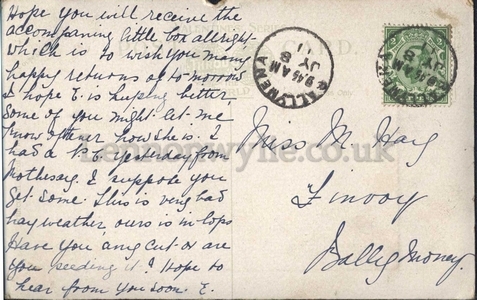 Hope you will receive the
accompaning little box allright
which is to wish you many
happy returns of to-morrow
I hope E. is keeping better
Some of you might let me
know often how she is. I
had a P.C. yesterday from
Rothesay. I suppose you
got some. This is very bad
hay weather, ours is in-tops
Have you any cut or are
you feeding it? Hope to
hear from you soon. E.
BALLYMENA
9.45 AM
JY 8
11
Miss M Hay
Finvoy
Ballymoney.
lennonwylie.co.uk